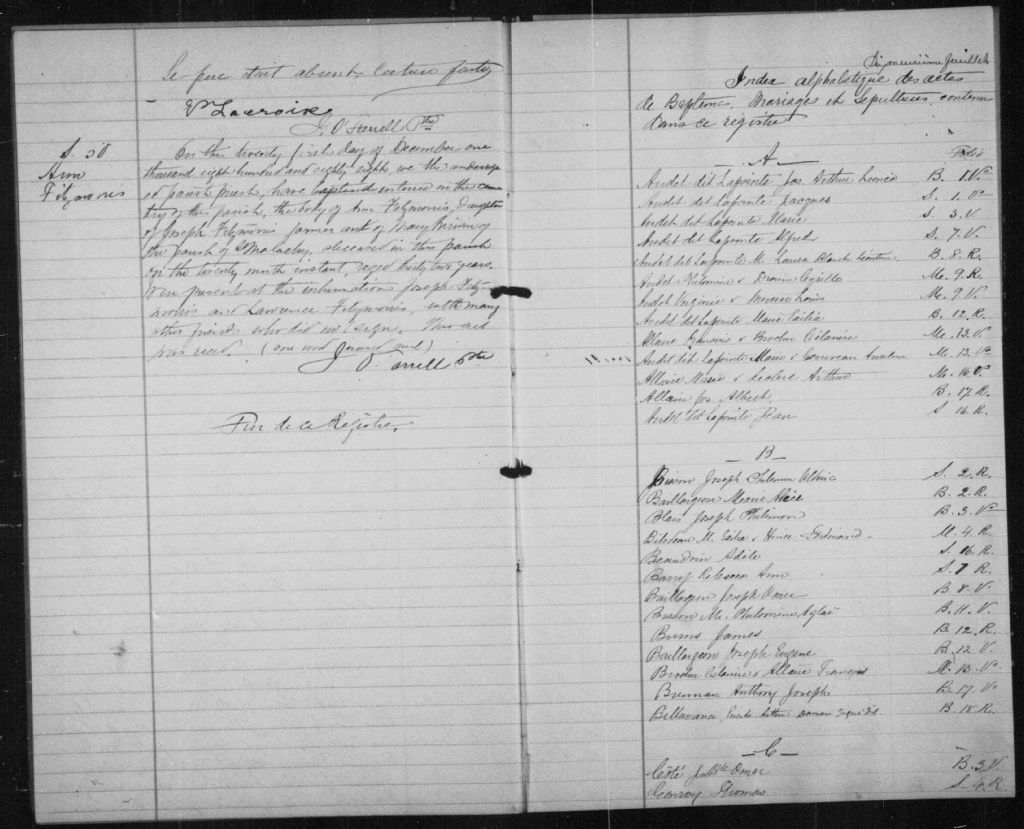 Le père était absent. Lecture faite
Vr Lacroix
J. O'Farrell Ptre
S. 50
Ann
Fitzmorris
On this twenty first day of December one
thousand eight hundred and eighty eight, we the undersign
ed parish priest, have baptised interred in the ceme
try of this parish, the body of Ann Fitzmorris, Daughter
of Joseph Fitzmorris farmer and of Mary of
the parish of St Malachy, deceased in this parish
on the twenty ninth instant, aged forty two years.
Were present at the inhumation Joseph Fitz
morris and Lawrence Fitzmorris, with many
other friends who did not sign. This act
was read. (one word null)
J. O'Farrell Ptre
Fin de ce Registre.
feuillet
Index alphabetique des actes
de Baptêmes, Mariages et Sepultures, contenu
dans ce registre
A
Folio
Audet dit Lapointe Jos Arthur B. 1. Vo
Audet dit Lapointe Jacques S. 1. Vo
Audet dit Lapointe Marie S. 3. V.
Audet dit Lapointe Alfred S. 7. V.
Audet dit Lapointe M. Laura Blanche B. 8. R.
Audet Philomène & Drouin M. 9. R.
Audet Virginie & Louis M. 9. V.
Audet dit Lapointe Marie B. 12. R.
Allaire François & Brochu Célanire M. 13. V.
Audet dit Lapointe Marie & M. 13. Vo
Allaire Marie & Leclerc Arthur M. 16. Vo
Allaire Jos Albert B. 17. R.
Audet dit Lapointe Jean S. 16. R.
B
Bisson Joseph Philemon S. 2. R.
Baillargeon Marie Alice B. 2. R.
Blais Joseph Philemon B. 3. Vo
Bilodeau M. & Ferdinand M. 4. R.
Beaudoin Adèle S. 16. R.
Barry Rebecca Ann S. 7 R.
Baillargeon Joseph Omer B 8. V.
Bisson M. Philomène Aglaé B. 11. V.
Burns James B. 12. R.
Baillargeon Joseph Eugene B. 12 V.
Brochu Célanire & Allaire François M. 13. Vo
Brennan Anthony Joseph B. 17. Vo
Bellavance Arthur Damase B. 18. R.
C
Côté J. Bte Omer B. 3. V.
Conroy Thomas S. 4. R.